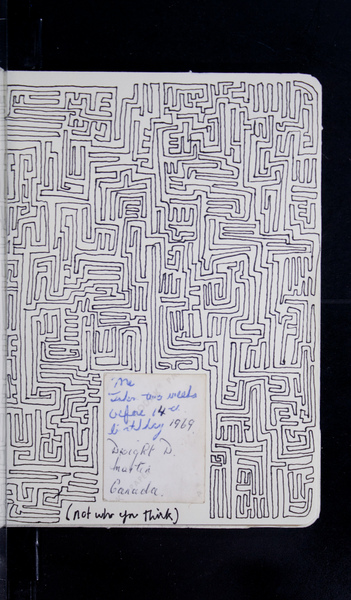 "Me
two weeks
before 14th
birthday 1969
Dwight D.
Canada.
(not who you think)